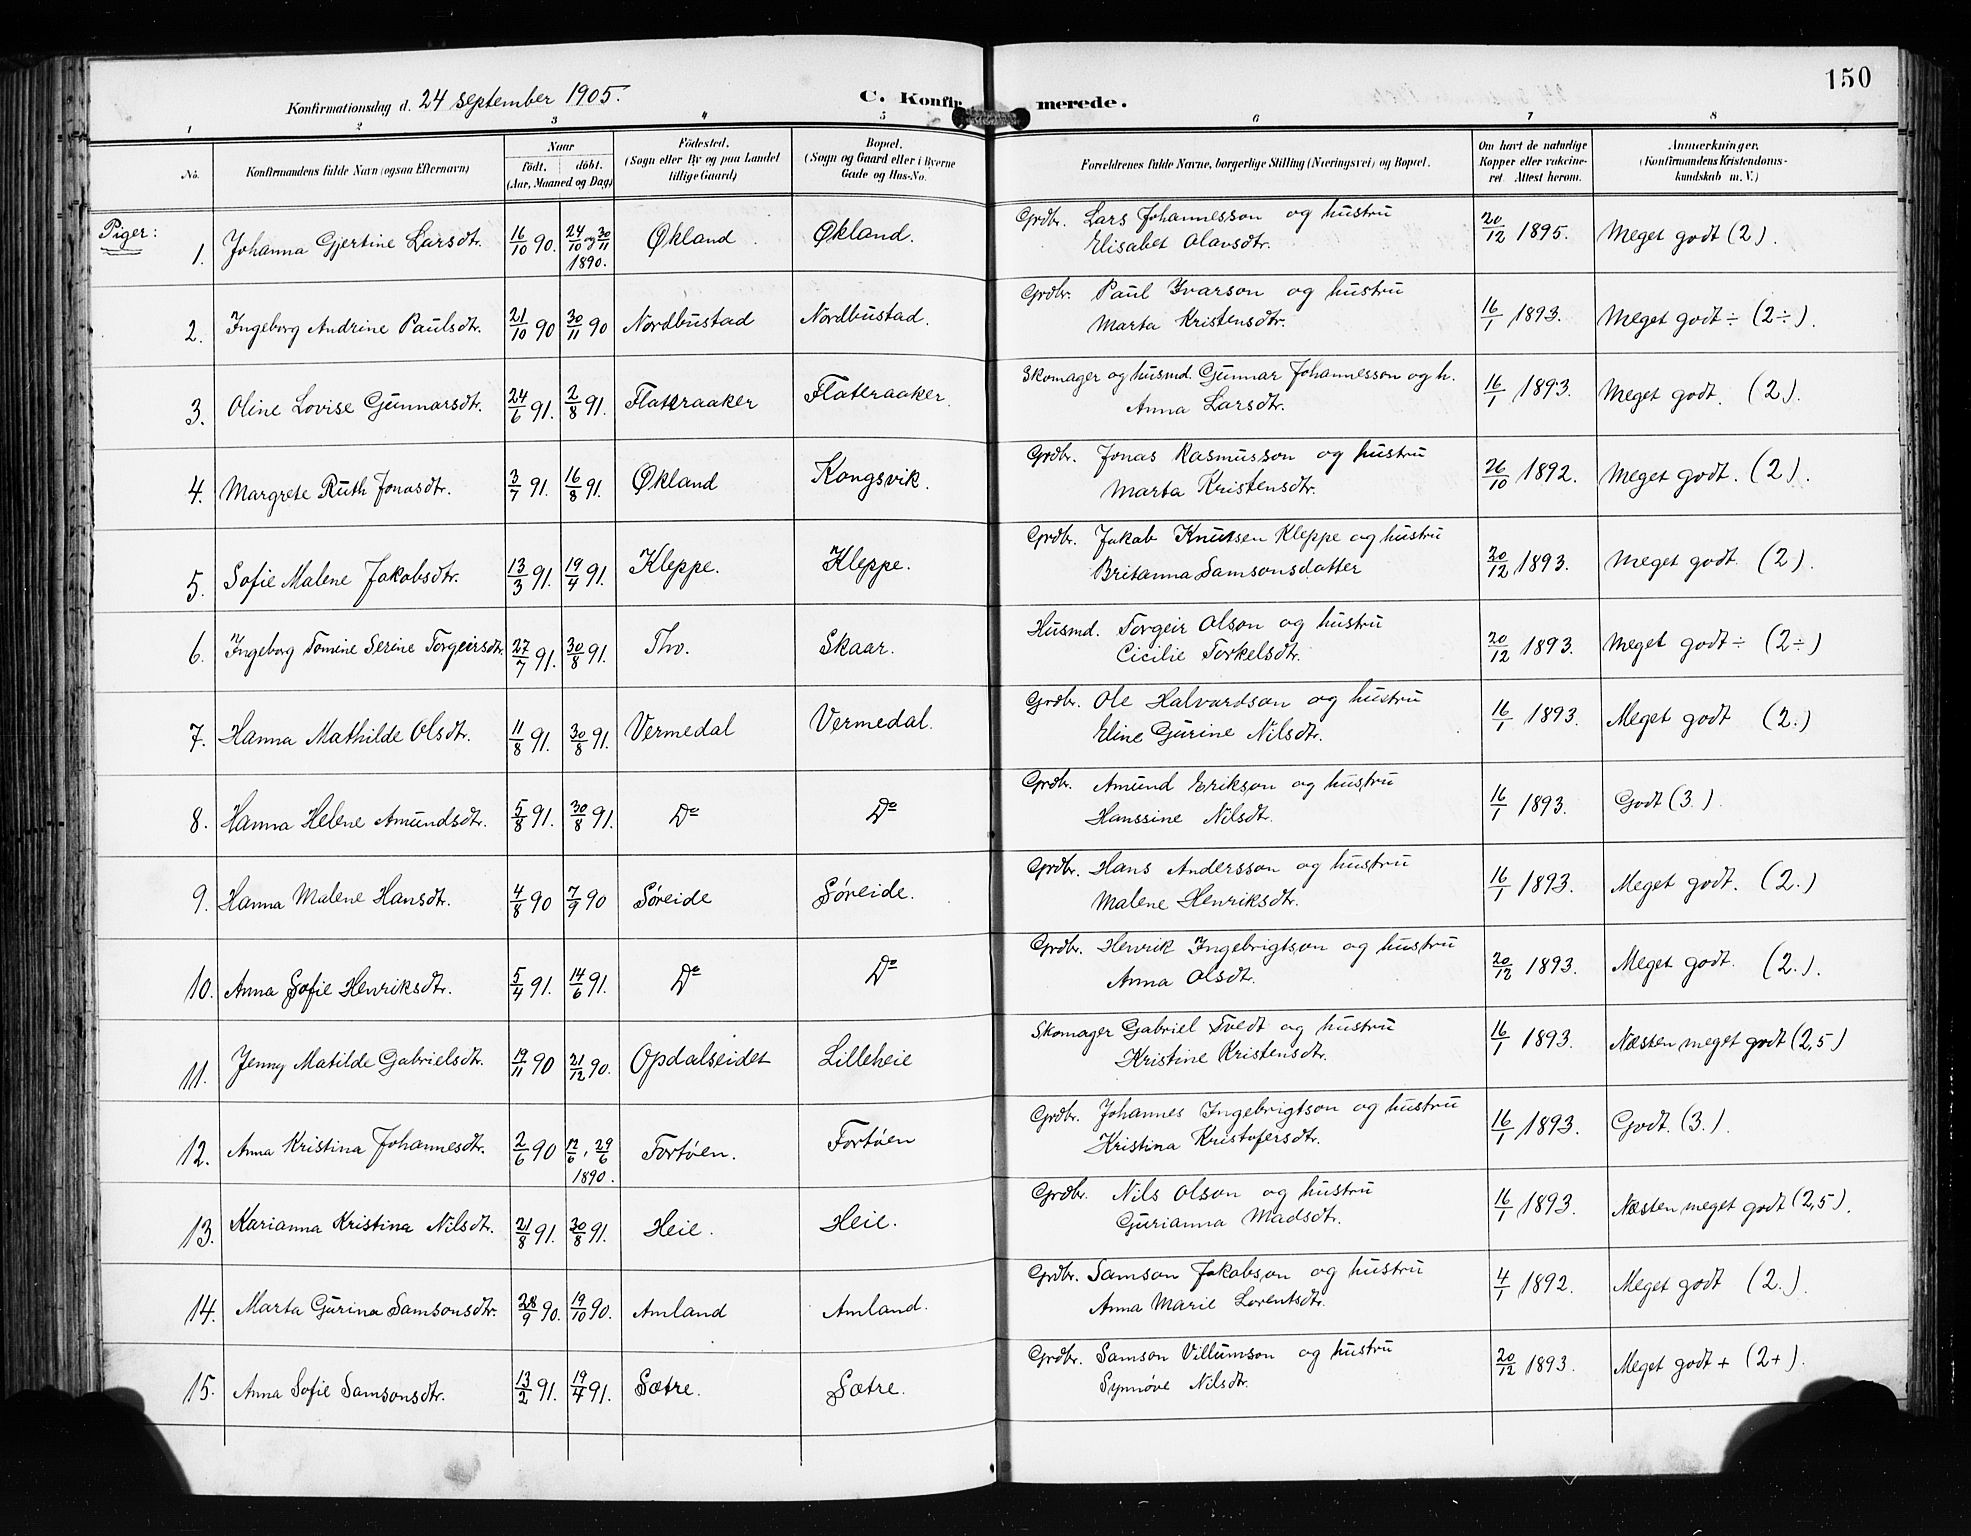 150
Konfirmationsdag d. 24 september 1905. C. Konfir merede.
1 2 3 4 5 6 7 8
No. Konfirmandens fulde Navn (ogsaa Efternavn) Naar født. døbt. (Aar, Maaned og Dag) Fødested. (Sogn eller By og paa Landet tillige Gaard) Bopæl. (Sogn og Gaard eller i Byerne Gade og Hus-No. Forældrenes fulde Navne, borgerlige Stilling (Næringsvei) og Bopæl. Om havt de naturlige Kopper eller vakcineret. Attest herom. Anmærkninger. (Konfirmandens Kristendomskundskab m. V.)
Piger:
1. Johanna Gjertine Larsdtr. 16/10 90. 24/10 og 30/11 1890. Økland Økland. Grdbr. Lars Johannesson og hustru Elisabet Olavsdtr. 20/12 1895. Meget godt (2).
2. Ingeborg Andrine Paulsdtr. 21/10 90 30/11 90 Nordbustad Nordbustad. Grdbr. Paul Ivarson og hustru Marta Kristensdtr. 16/1 1893. Meget godt ÷ (2÷).
3. Oline Lovise Gunnarsdtr. 24/6 91. 2/8 91. Flateraaker Flateraaker. Skomager og husmd. Gunnar Johannesson og h. Anna Larsdtr. 16/1 1893. Meget godt. (2).
4. Margrete Ruth Jonasdtr. 3/7 91. 16/8 91. Økland Kongsvik. Grdbr. Jonas Rasmusson og hustru Marta Kristensdtr. 26/10 1892. Meget godt. (2).
5. Sofie Malene Jakobsdtr. 13/3 91. 19/4 91. Kleppe. Kleppe. Grdbr. Jakob Knutsen Kleppe og hustru Britanna Samsonsdatter 20/12 1893. Meget godt. (2).
6. Ingeborg Tomine Serine Torgeirsdtr. 27/7 91. 30/8 91. Tho. Skaar. Husmd. Torgeir Olson og hustru Cicilie Torkelsdtr. 20/12 1893. Meget godt ÷ (2÷)
7. Hanna Mathilde Olsdtr. 11/8 91. 30/8 91. Vermedal Vermedal. Grdbr. Ole Halvardson og hustru Eline Gurine Nilsdtr. 16/1 1893. Meget godt (2.)
8. Hanna Helene Amundsdtr. 5/8 91. 30/8 91. Do Do Grdbr. Amund Erikson og hustru Hanssine Nilsdt. 16/1 1893. Godt (3.)
9. Hanna Malene Hansdtr. 4/8 90 7/9 90 Søreide Søreide. Grdbr. Hans Andersson og hustru Malene Henriksdtr. 16/1 1893. Meget godt. (2.)
10. Anna Sofie Henriksdtr. 5/4 91. 14/6 91. Do Do Grdbr. Henrik Ingebrigtson og hustru Anna Olsdt. 20/12 1893. Meget godt. (2.).
11. Jenny Matilde Gabrielsdtr. 19/11 90 21/12 90. Opdalseidet Lilleheie Skomager Gabriel Tvedt og hustru Kristine Kristensdtr. 16/1 1893. Næsten meget godt (2,5)
12. Anna Kristina Johannesdtr. 2/6 90 12/6, 29/6 1890. Fortøen. Fortøen Grdbr. Johannes Ingebrigtson og hustru Kristina Kristofersdtr. 16/1 1893. Godt. (3.).
13. Karianna Kristina Nilsdtr. 21/8 91. 30/8 91. Heie. Heie. Grdbr. Nils Olson og hustru Gurianna Madsdtr. 16/1 1893. Næsten meget godt (2,5).
14. Marta Gurina Samsonsdtr. 28/9 90. 19/10 90. Amland Amland. Grdbr. Samson Jakobson og hustru Anna Marie Lorentsdtr. 4/1 1892. Meget godt (2.)
15. Anna Sofie Samsonsdtr. 13/2 91. 19/4 91. Sætre. Sætre. Grdbr. Samson Villumson og hustru Synnøve Nilsdtr. 20/12 1893. Meget godt + (2+).